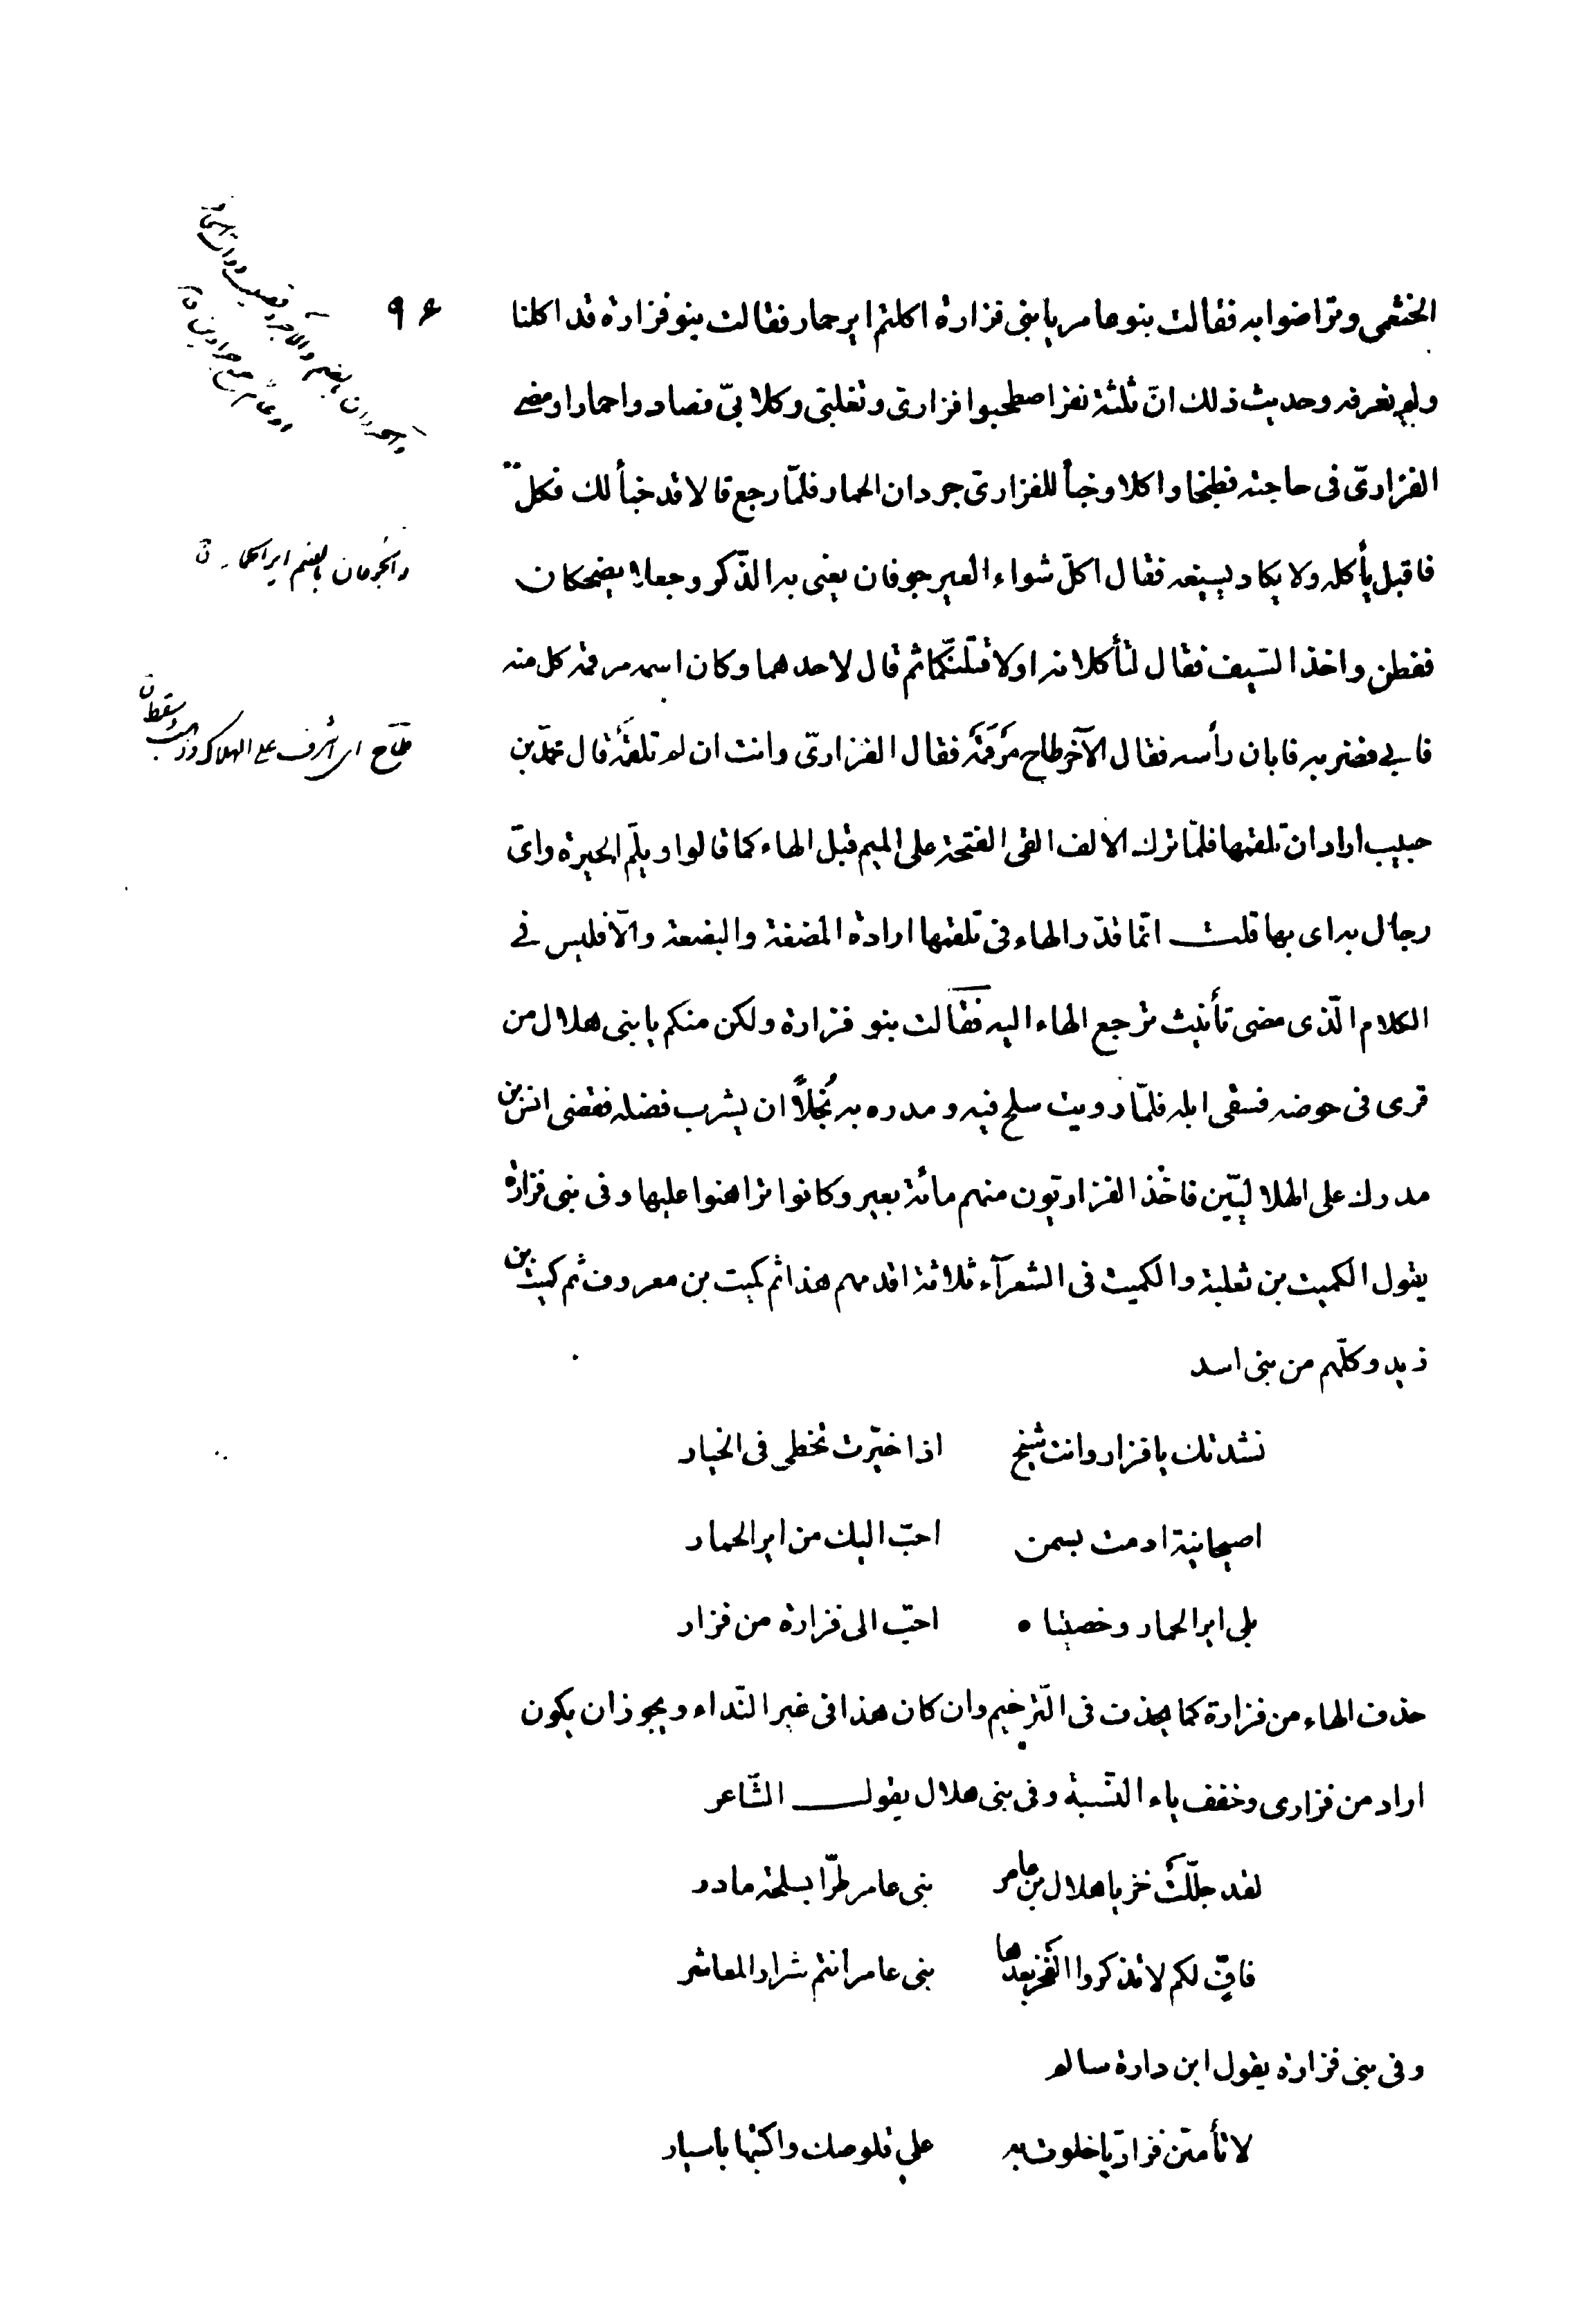 ٩۶
الخثعمى وتراضوا به فقالت بنو عامر يا بنى فزارة اكلتم اير حمار فقالت بنو فزارة قد اكلنا
ولم نعرفه وحديث ذلك انّ ثلثة نفر اصطحبوا فزارىّ وتغلبىّ وكلابىّ فصادوا حمارا ومضى
الفزارىّ فى حاجته فطبخا واكلا وخبأ للفزارىّ جردان الحمار فلمّا رجع قالا قد خبأ لك فكل
فاقبل يأكله ولا يكاد يسيغه فقال اكلّ شواء العير جوفان يعنى به الذّكر وجعلا يضحكان
ففطن واخذ السّيف فقال لتأكلانه اولاقتلنّكما ثم قال لاحدهما وكان اسمه مرقمه كل منه
فابى فضربه فابان رأسه فقال الآخر طاح مَرْقَمَهْ فقال الفزارىّ وانت ان لم تلقمَهْ قال محمّد بن
حبيب اراد ان تلقمها فلمّا ترك الالف القى الفتحة على الميم قبل الهاء كما قالوا ويلمّ الحيرة واىّ
رجال به اى بها قلت انّما قدّر الهاء فى تلقمها ارادة المضغة والبضعة والّا فليس فى
الكلام الّذى مضى تأنيث ترجع الهاء اليه فقالت بنو فزارة ولكن منكم يا بنى هلال من
قرى فى حوضه فسقى ابله فلمّا رويت سلح فيه ومدره به بُخلاً ان يشرب فضله فقضى انس بن
مدرك على الهلاليّين فاخذ الفزاريّون منهم مائة بعير وكانوا تراهنوا عليها وفى بنى فزارة
يقول الكميت بن ثعلبة والكميت فى الشعرآء ثلاثة اقدمهم هذا ثم كميت بن معروف ثم كميت بن
زيد وكلّهم من بنى اسد
نشدتك يا فزار وانت شيخ اذا خيّرت تخطى فى الخيار
اصيحانية ادمت بسمن احبّ اليك من اير الحمار
بلى اير الحمار وخصيتاه احبّ الى فزارة من فزار
حذف الهاء من فزارة كما يحذف فى التّرخيم وان كان هذا فى غير النّداء ويجوز ان يكون
اراد من فزارى وخفف ياء النّسبة وفى بنى هلال يقول الشّاعر
لقد جلّلَت خزيا هلال بن عامر بنى عامر طرّا بسلحة مادر
فافّ لكم لا تذكروا الفخر بعدها بنى عامر أنتم شرار المعاشر
وفى بنى فزارة يقول ابن دارة سالم
لا تأمنّن فزاريّا خلوت به على قلوصك واكتبها باسيار
والجوفان بالضم اير الحمار
طاح اى اشرف على الهلاك وذهب وسقط